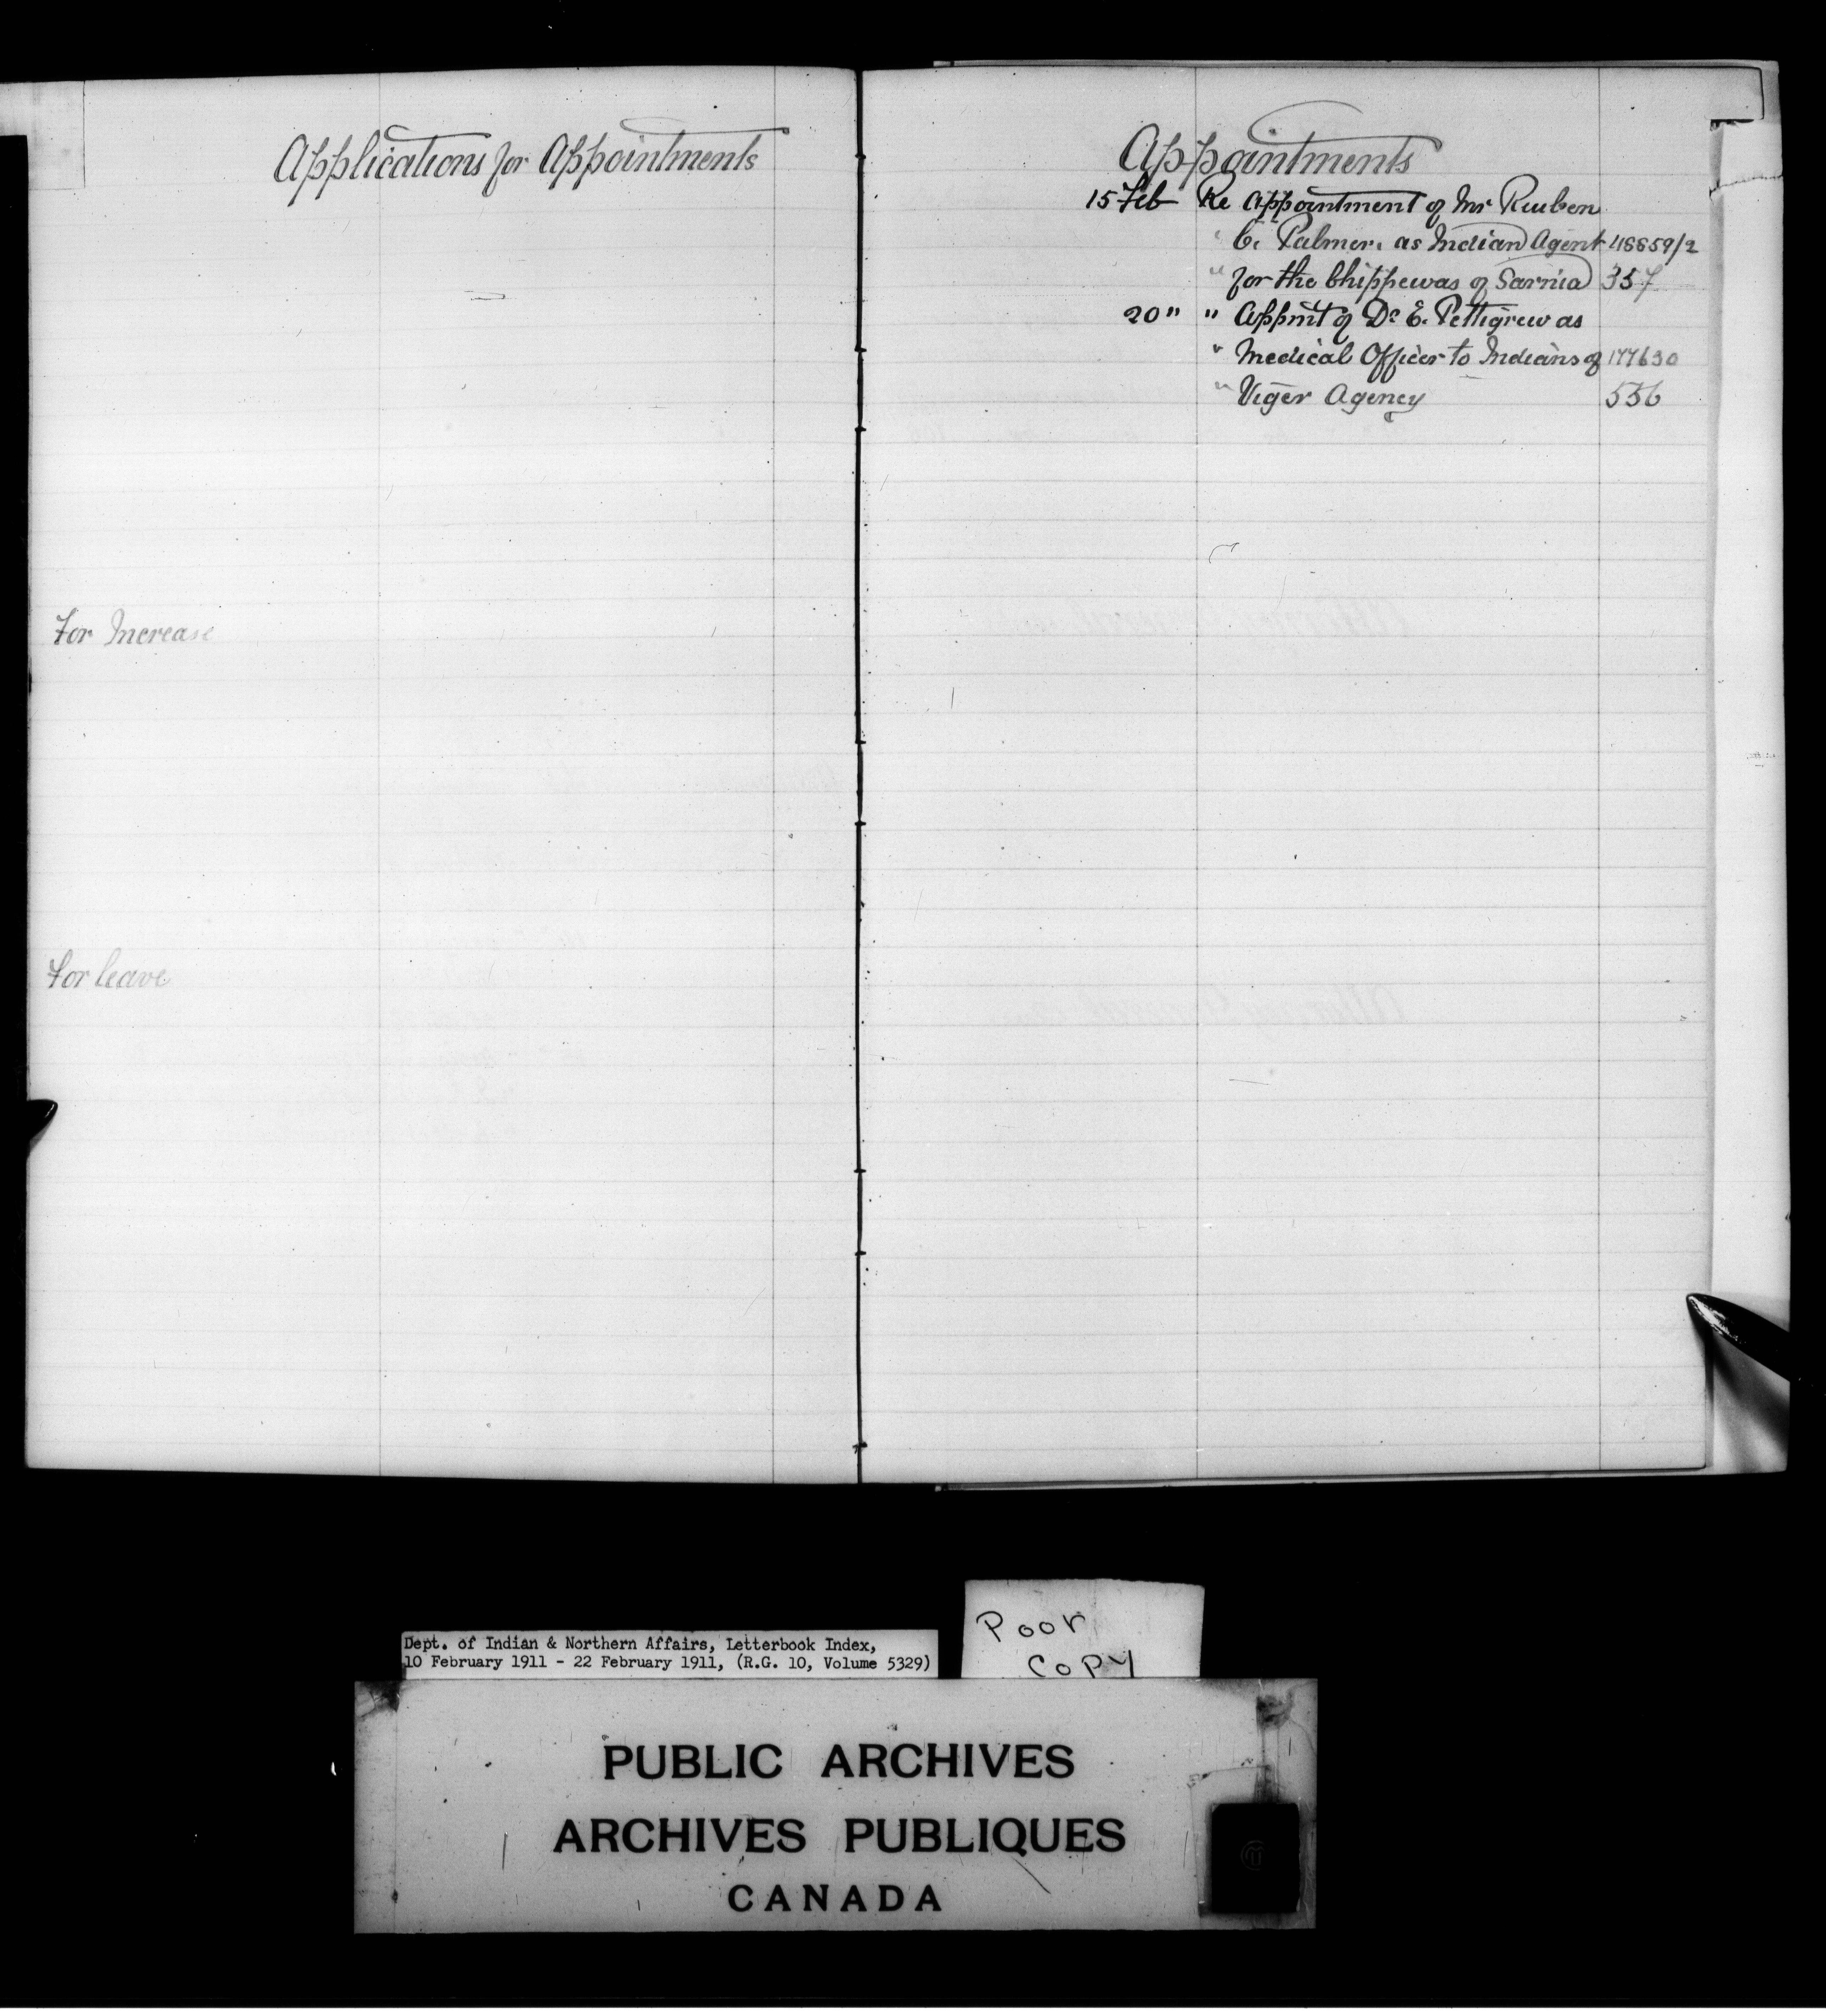 Applications for Appointments
For Increase
For leave
Appointments
15 Feb Re Appointment of Mr Reuben
" C. Palmer. as Indian Agent 48859/2
" for the Chippewas of Sarnia 357
20 " " Appmt of Dr E. Pettigrew as
" Medical Officer to Indians of 177630
" Viger Agency 536
Poor
Copy
Dept. of Indian & Northern Affairs, Letterbook Index,
10 February 1911 - 22 February 1911, (R.G. 10, Volume 5329)
PUBLIC ARCHIVES
ARCHIVES PUBLIQUES
CANADA